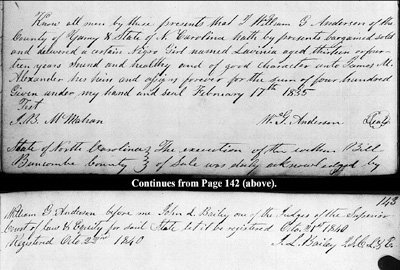 Know all men by these presents that I William G Anderson of the
County of Yancy & State of N. Carolina hath by presents bargained sold
and delivered a certain Negro Girl named Lavinia aged thirteen or four-
teen years Sound and healthy and of good character unto James M.
Alexander his heirs and assigns forever for the sum of four hundred
Given under my hand and seal February 17th 1835
Test
J.B. McMahan W. G. Anderson (Seal)
State of North Carolina } The execution of the within Bill
Buncombe County } of Sale was duly acknowledged by
Continues from Page 142 (above).
143
William G Anderson before me John L Bailey one of the Judges of the Superior
Court of law & Equity for said State let it be registered Oct. 21st 1840
Registered Oct. 22nd 1840 J. L. Bailey